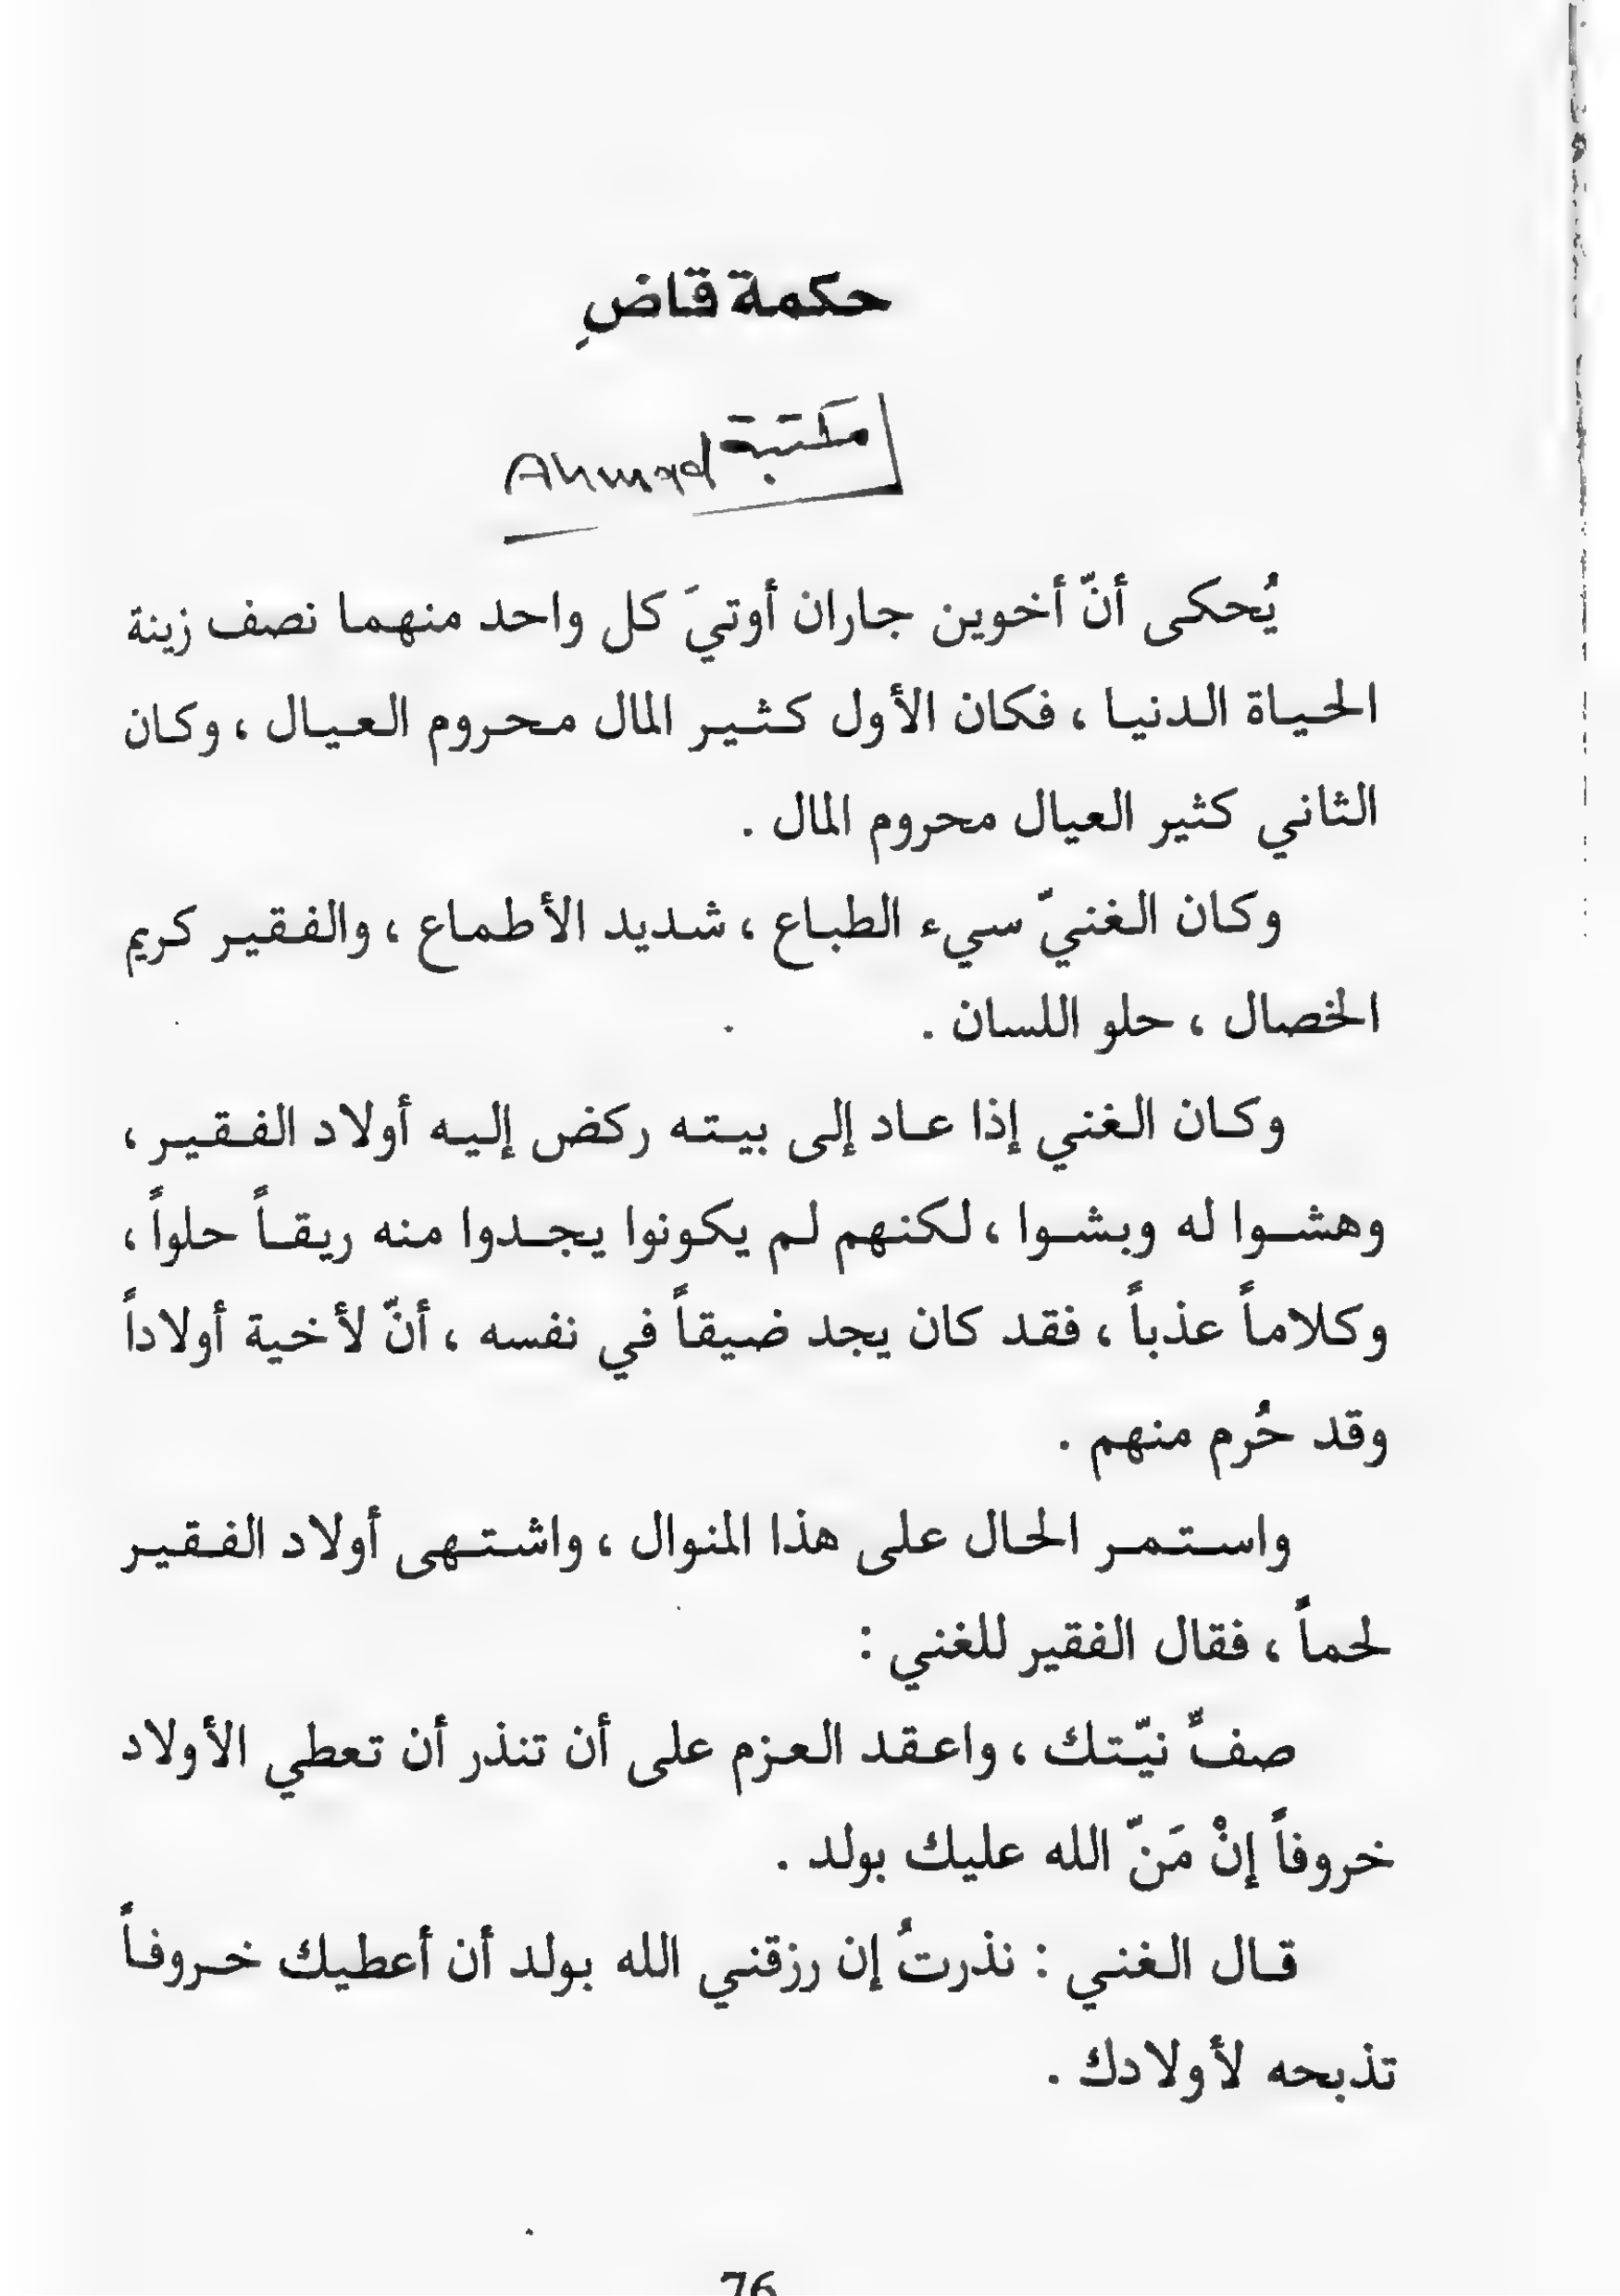 حكمة قاضٍ
مكتبة Ahmad
يُحكى أنّ أخوين جاران أوتيَ كل واحد منهما نصف زينة
الحياة الدنيا ، فكان الأول كثير المال محروم العيال ، وكان
الثاني كثير العيال محروم المال .
وكان الغنيّ سيء الطباع ، شديد الأطماع ، والفقير كريم
الخصال ، حلو اللسان .
وكان الغني إذا عاد إلى بيته ركض إليه أولاد الفقير ،
وهشوا له وبشوا ، لكنهم لم يكونوا يجدوا منه ريقاً حلواً ،
وكلاماً عذباً ، فقد كان يجد ضيقاً في نفسه ، أنّ لأخية أولاداً
وقد حُرم منهم .
واستمر الحال على هذا المنوال ، واشتهى أولاد الفقير
لحماً ، فقال الفقير للغني :
صفٌّ نيّتك ، واعقد العزم على أن تنذر أن تعطي الأولاد
خروفاً إنْ مَنّ الله عليك بولد .
قال الغني : نذرتُ إن رزقني الله بولد أن أعطيك خروفاً
تذبحه لأولادك .
76